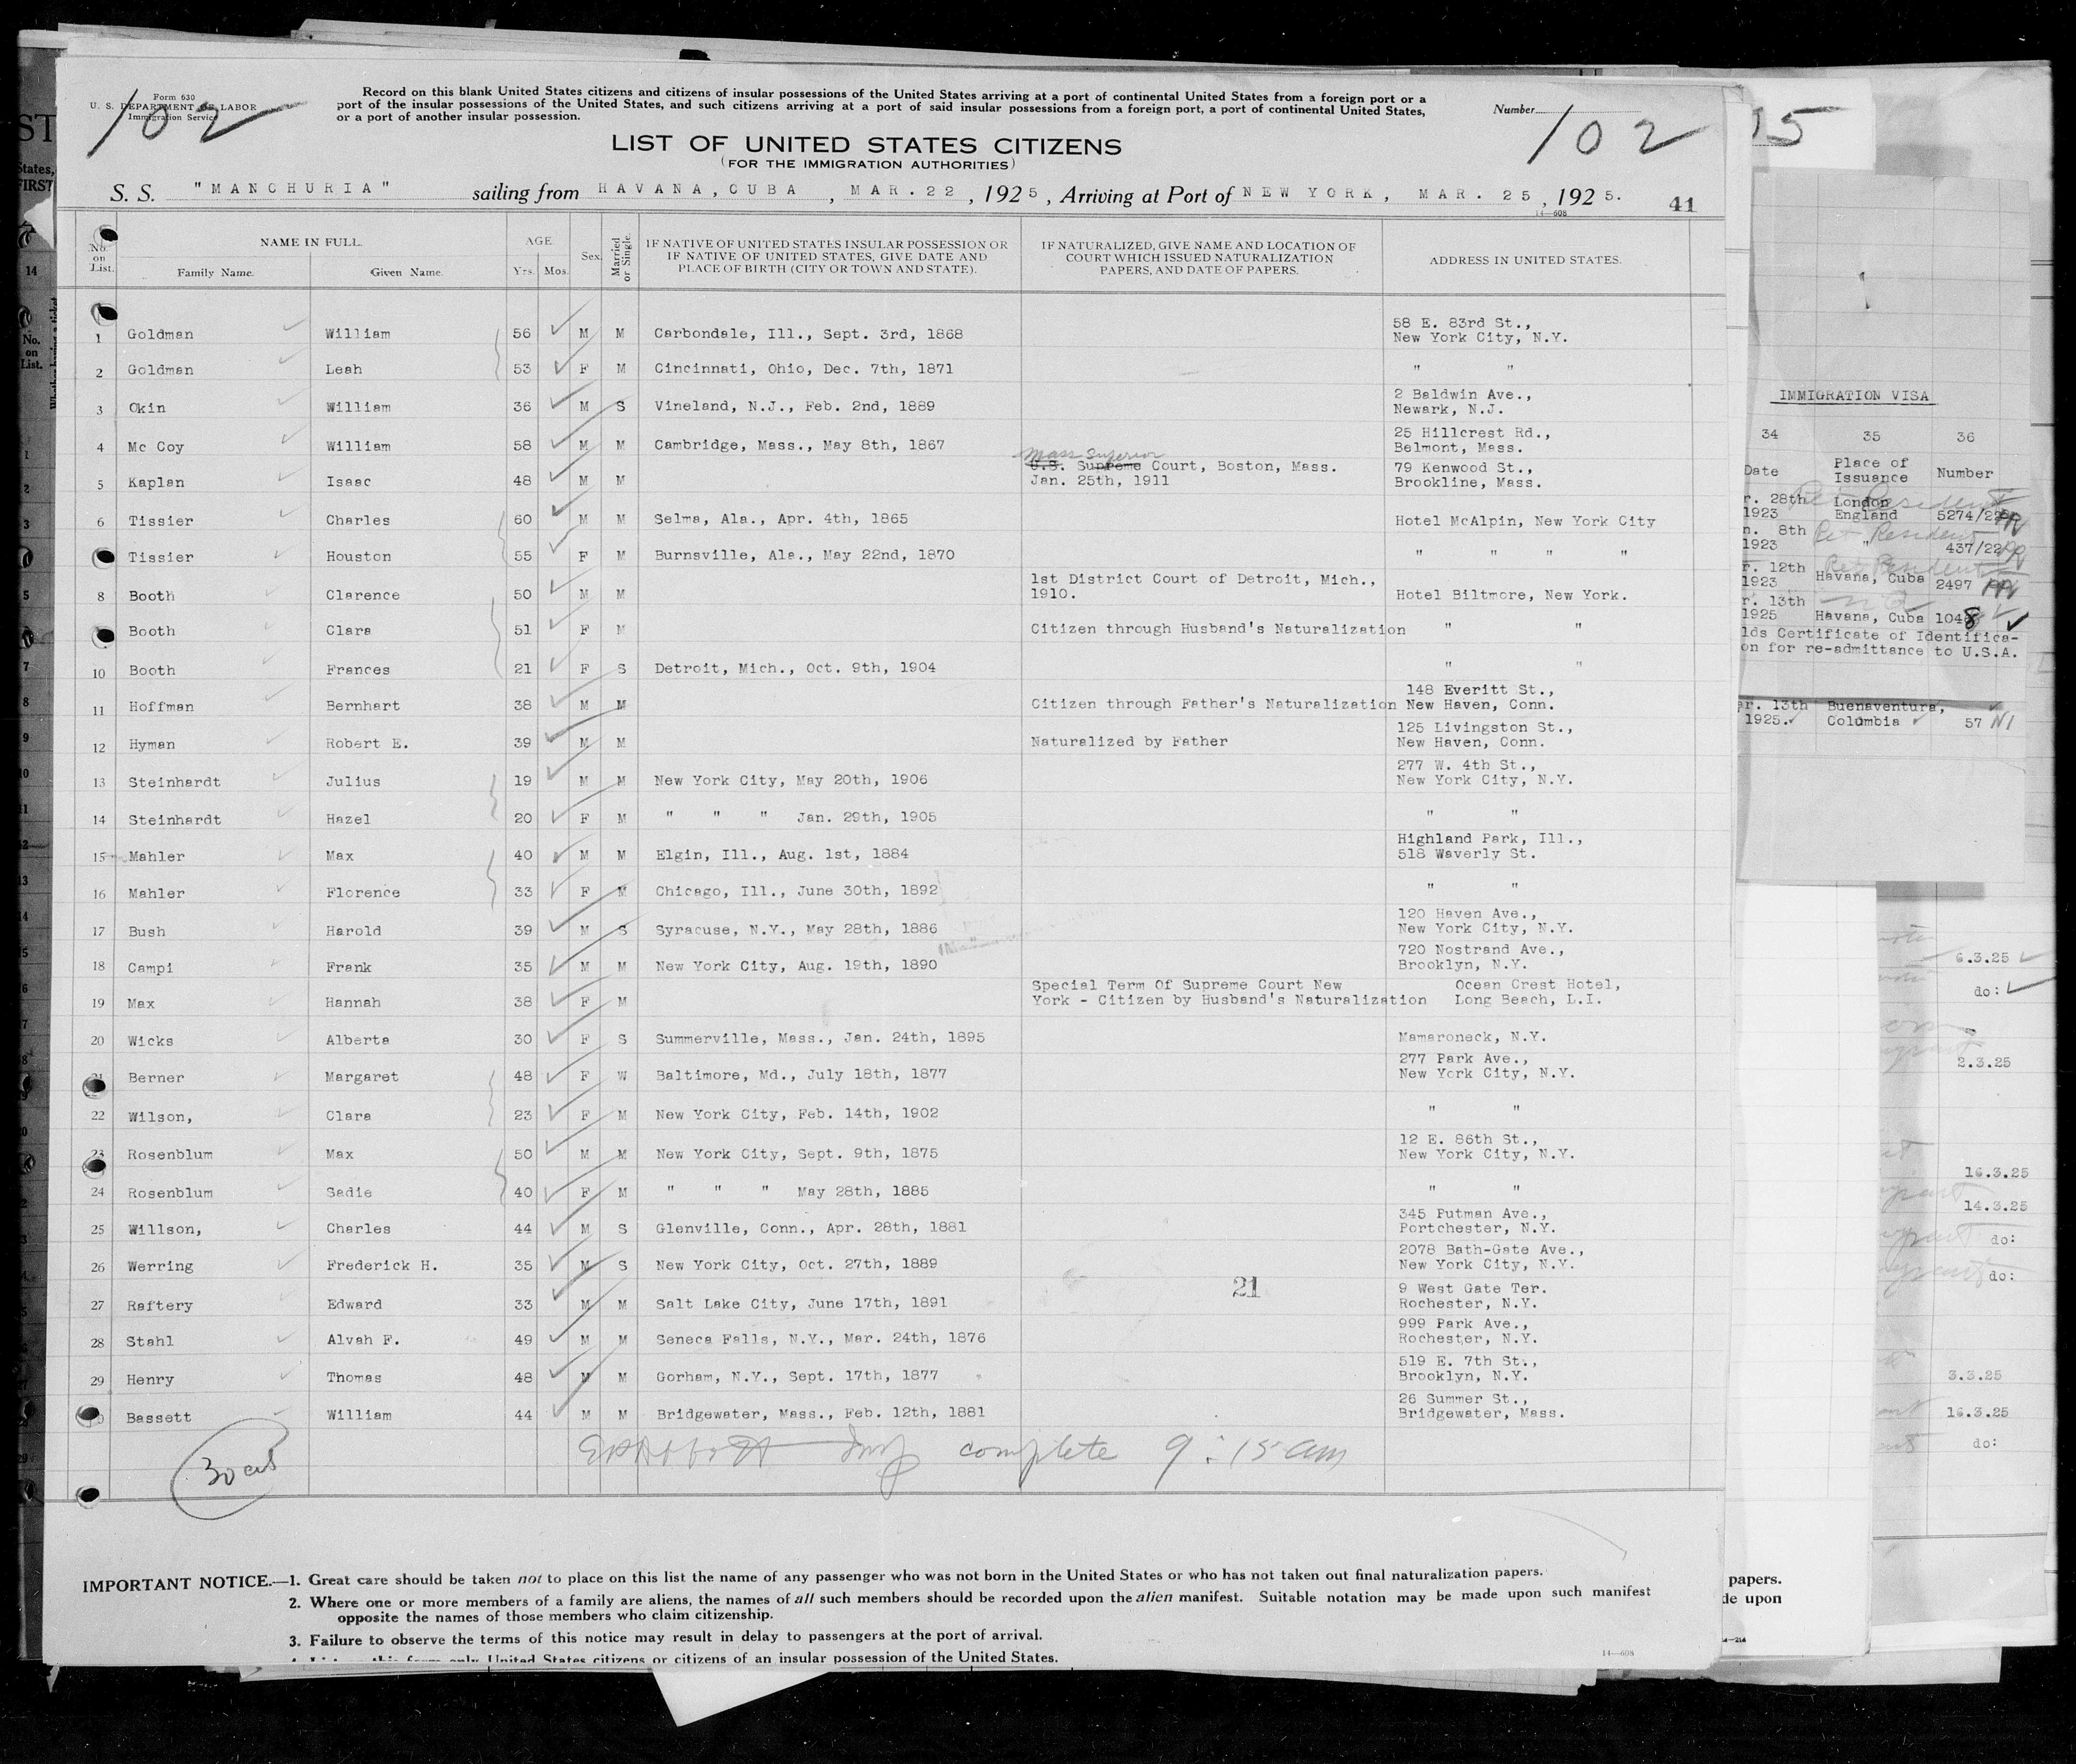 Form 630
U. S. DEPARTMENT OF LABOR
Immigration Service
102
Record on this blank United States citizens and citizens of insular possessions of the United States arriving at a port of continental United States from a foreign port or a
port of the insular possessions of the United States, and such citizens arriving at a port of said insular possessions from a foreign port, a port of continental United States,
or a port of another insular possession.
Number
102
LIST OF UNITED STATES CITIZENS
(FOR THE IMMIGRATION AUTHORITIES)
S. S. "MANCHURIA" sailing from HAVANA, CUBA, MAR. 22, 1925, Arriving at Port of NEW YORK, MAR. 25, 1925.
14—608
41
No. on List.
NAME IN FULL.
Family Name. Given Name.
AGE.
Yrs. Mos.
Sex.
Married or Single.
IF NATIVE OF UNITED STATES INSULAR POSSESSION OR
IF NATIVE OF UNITED STATES, GIVE DATE AND
PLACE OF BIRTH (CITY OR TOWN AND STATE).
IF NATURALIZED, GIVE NAME AND LOCATION OF
COURT WHICH ISSUED NATURALIZATION
PAPERS, AND DATE OF PAPERS.
ADDRESS IN UNITED STATES.
1 Goldman William 56 M M Carbondale, Ill., Sept. 3rd, 1868 58 E. 83rd St.,
New York City, N.Y.
2 Goldman Leah 53 F M Cincinnati, Ohio, Dec. 7th, 1871 " "
3 Okin William 36 M S Vineland, N.J., Feb. 2nd, 1889 2 Baldwin Ave.,
Newark, N.J.
4 Mc Coy William 58 M M Cambridge, Mass., May 8th, 1867 25 Hillcrest Rd.,
Belmont, Mass.
Mass Superior
5 Kaplan Isaac 48 M M U.S. Supreme Court, Boston, Mass.
Jan. 25th, 1911 79 Kenwood St.,
Brookline, Mass.
6 Tissier Charles 60 M M Selma, Ala., Apr. 4th, 1865 Hotel McAlpin, New York City
Tissier Houston 55 F M Burnsville, Ala., May 22nd, 1870 " " " "
8 Booth Clarence 50 M M 1st District Court of Detroit, Mich.,
1910. Hotel Biltmore, New York.
Booth Clara 51 F M Citizen through Husband's Naturalization " "
10 Booth Frances 21 F S Detroit, Mich., Oct. 9th, 1904 " "
11 Hoffman Bernhart 38 M M Citizen through Father's Naturalization 148 Everitt St.,
New Haven, Conn.
12 Hyman Robert E. 39 M M Naturalized by Father 125 Livingston St.,
New Haven, Conn.
13 Steinhardt Julius 19 M M New York City, May 20th, 1906 277 W. 4th St.,
New York City, N.Y.
14 Steinhardt Hazel 20 F M " " " Jan. 29th, 1905 " "
15 Mahler Max 40 M M Elgin, Ill., Aug. 1st, 1884 Highland Park, Ill.,
518 Waverly St.
16 Mahler Florence 33 F M Chicago, Ill., June 30th, 1892 " "
17 Bush Harold 39 M S Syracuse, N.Y., May 28th, 1886 120 Haven Ave.,
New York City, N.Y.
18 Campi Frank 35 M M New York City, Aug. 19th, 1890 720 Nostrand Ave.,
Brooklyn, N.Y.
19 Max Hannah 38 F M Special Term Of Supreme Court New
York - Citizen by Husband's Naturalization Ocean Crest Hotel,
Long Beach, L.I.
20 Wicks Alberta 30 F S Summerville, Mass., Jan. 24th, 1895 Mamaroneck, N.Y.
21 Berner Margaret 48 F W Baltimore, Md., July 18th, 1877 277 Park Ave.,
New York City, N.Y.
22 Wilson, Clara 23 F M New York City, Feb. 14th, 1902 " "
23 Rosenblum Max 50 M M New York City, Sept. 9th, 1875 12 E. 86th St.,
New York City, N.Y.
24 Rosenblum Sadie 40 F M " " " May 28th, 1885 " "
25 Willson, Charles 44 M S Glenville, Conn., Apr. 28th, 1881 345 Putman Ave.,
Portchester, N.Y.
26 Werring Frederick H. 35 M S New York City, Oct. 27th, 1889 2078 Bath-Gate Ave.,
New York City, N.Y.
21
27 Raftery Edward 33 M M Salt Lake City, June 17th, 1891 9 West Gate Ter.
Rochester, N.Y.
28 Stahl Alvah F. 49 M M Seneca Falls, N.Y., Mar. 24th, 1876 999 Park Ave.,
Rochester, N.Y.
29 Henry Thomas 48 M M Gorham, N.Y., Sept. 17th, 1877 519 E. 7th St.,
Brooklyn, N.Y.
Bassett William 44 M M Bridgewater, Mass., Feb. 12th, 1881 26 Summer St.,
Bridgewater, Mass.
30 cit
complete 9:15 am
IMPORTANT NOTICE.—1. Great care should be taken not to place on this list the name of any passenger who was not born in the United States or who has not taken out final naturalization papers.
2. Where one or more members of a family are aliens, the names of all such members should be recorded upon the alien manifest. Suitable notation may be made upon such manifest
opposite the names of those members who claim citizenship.
3. Failure to observe the terms of this notice may result in delay to passengers at the port of arrival.
only United States citizens or citizens of an insular possession of the United States.
14—608
15
IMMIGRATION VISA
34 35 36
Date Place of Issuance Number
28th
1923 London
England 5274/22
8th
1923 Ret Resident " 437/22
12th
1923 Ret Resident Havana, Cuba 2497
13th
1925 Havana, Cuba 1048
lds Certificate of Identifica-
on for re-admittance to U.S.A.
ar. 13th
1925. Buenaventura,
Colombia 57
6.3.25
do:
2.3.25
16.3.25
14.3.25
do:
do:
3.3.25
16.3.25
do:
papers.
de upon